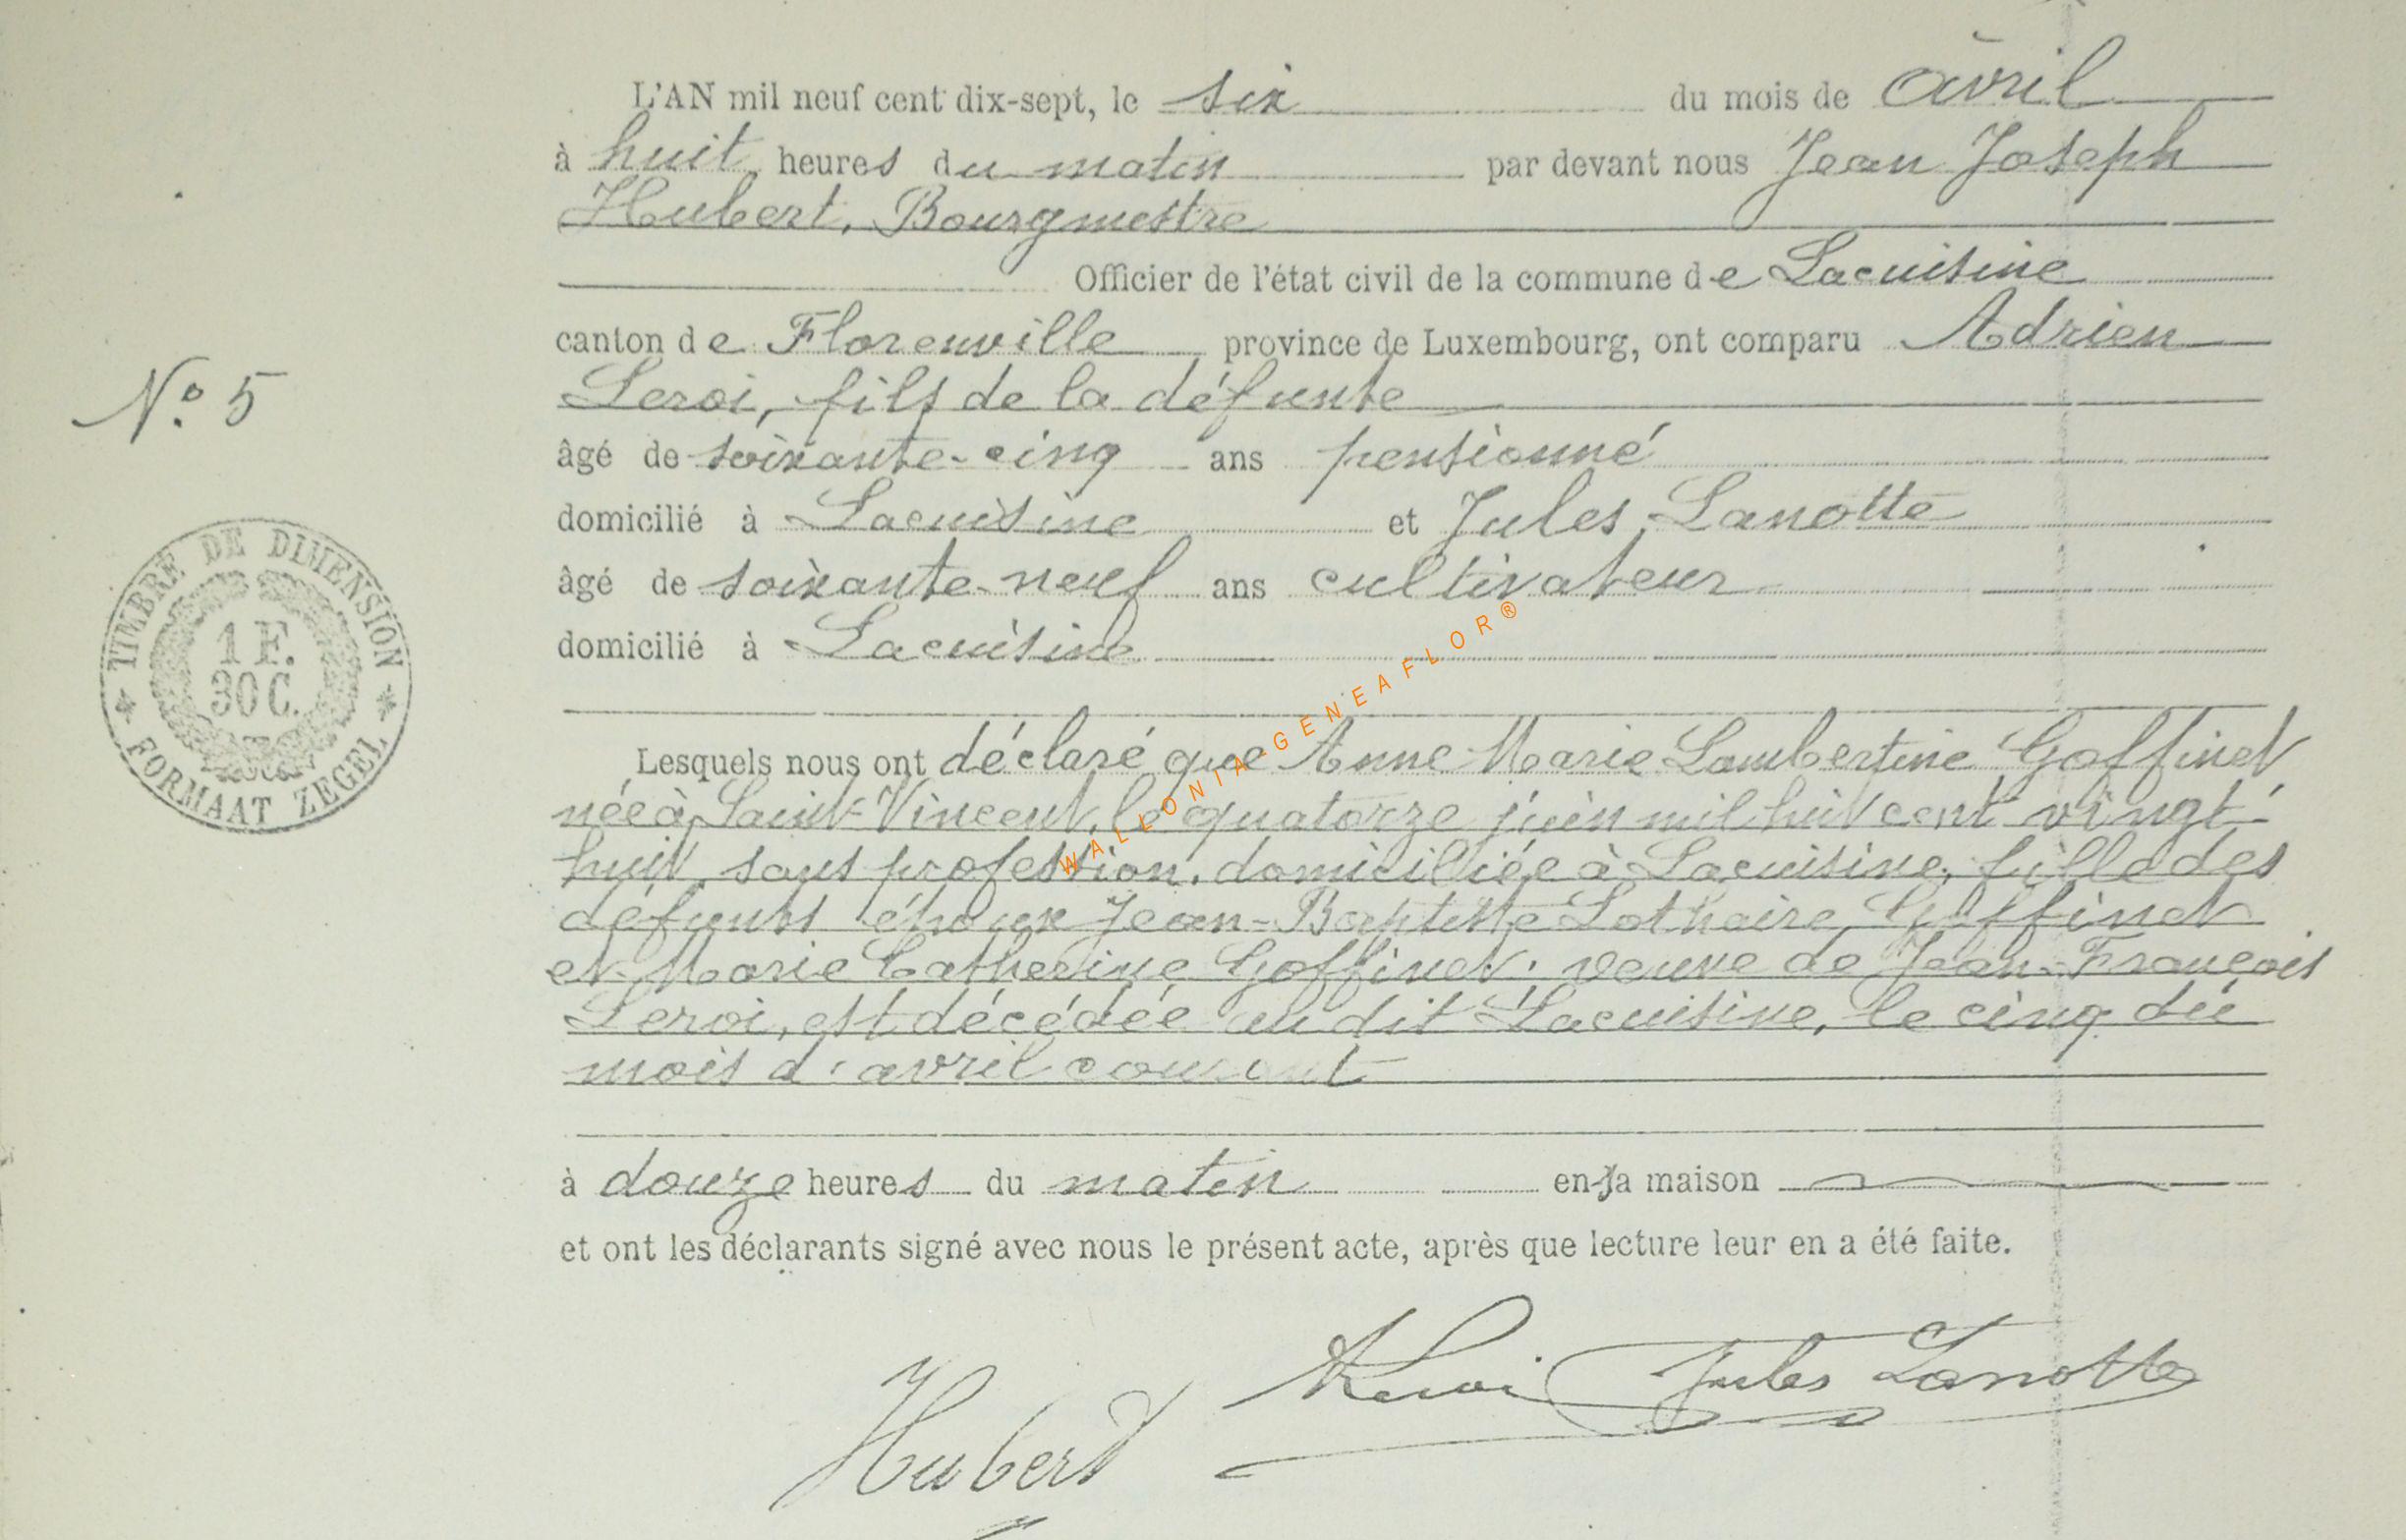 L'AN mil neuf cent dix-sept, le six du mois de avril
à huit heures du matin par devant nous Jean Joseph
Hubert, Bourgmestre
Officier de l'état civil de la commune de Lacuisine
canton de Florenville province de Luxembourg, ont comparu Adrien
Leroi, fils de la défunte
N° 5
âgé de soixante-cinq ans pensionné
domicilié à Lacuisine et Jules Lanotte
âgé de soixante-neuf ans cultivateur
domicilié à Lacuisine
TIMBRE DE DIMENSION
1 F.
30 C.
FORMAAT ZEGEL
Lesquels nous ont déclaré que Anne Marie Lambertine Goffinet
née à Saint-Vincent, le quatorze juin mil huit cent vingt-
huit, sans profession, domiciliée à Lacuisine, fille des
défunts époux Jean-Baptiste Lothaire Goffinet
et Marie Catherine Goffinet, veuve de Jean-François
Leroi, est décédée au dit Lacuisine, le cinq du
mois d'avril courant
à douze heures du matin en sa maison
et ont les déclarants signé avec nous le présent acte, après que lecture leur en a été faite.
ALeroi Jules Lanotte
Hubert
WALLONIA-GENEAFLOR®